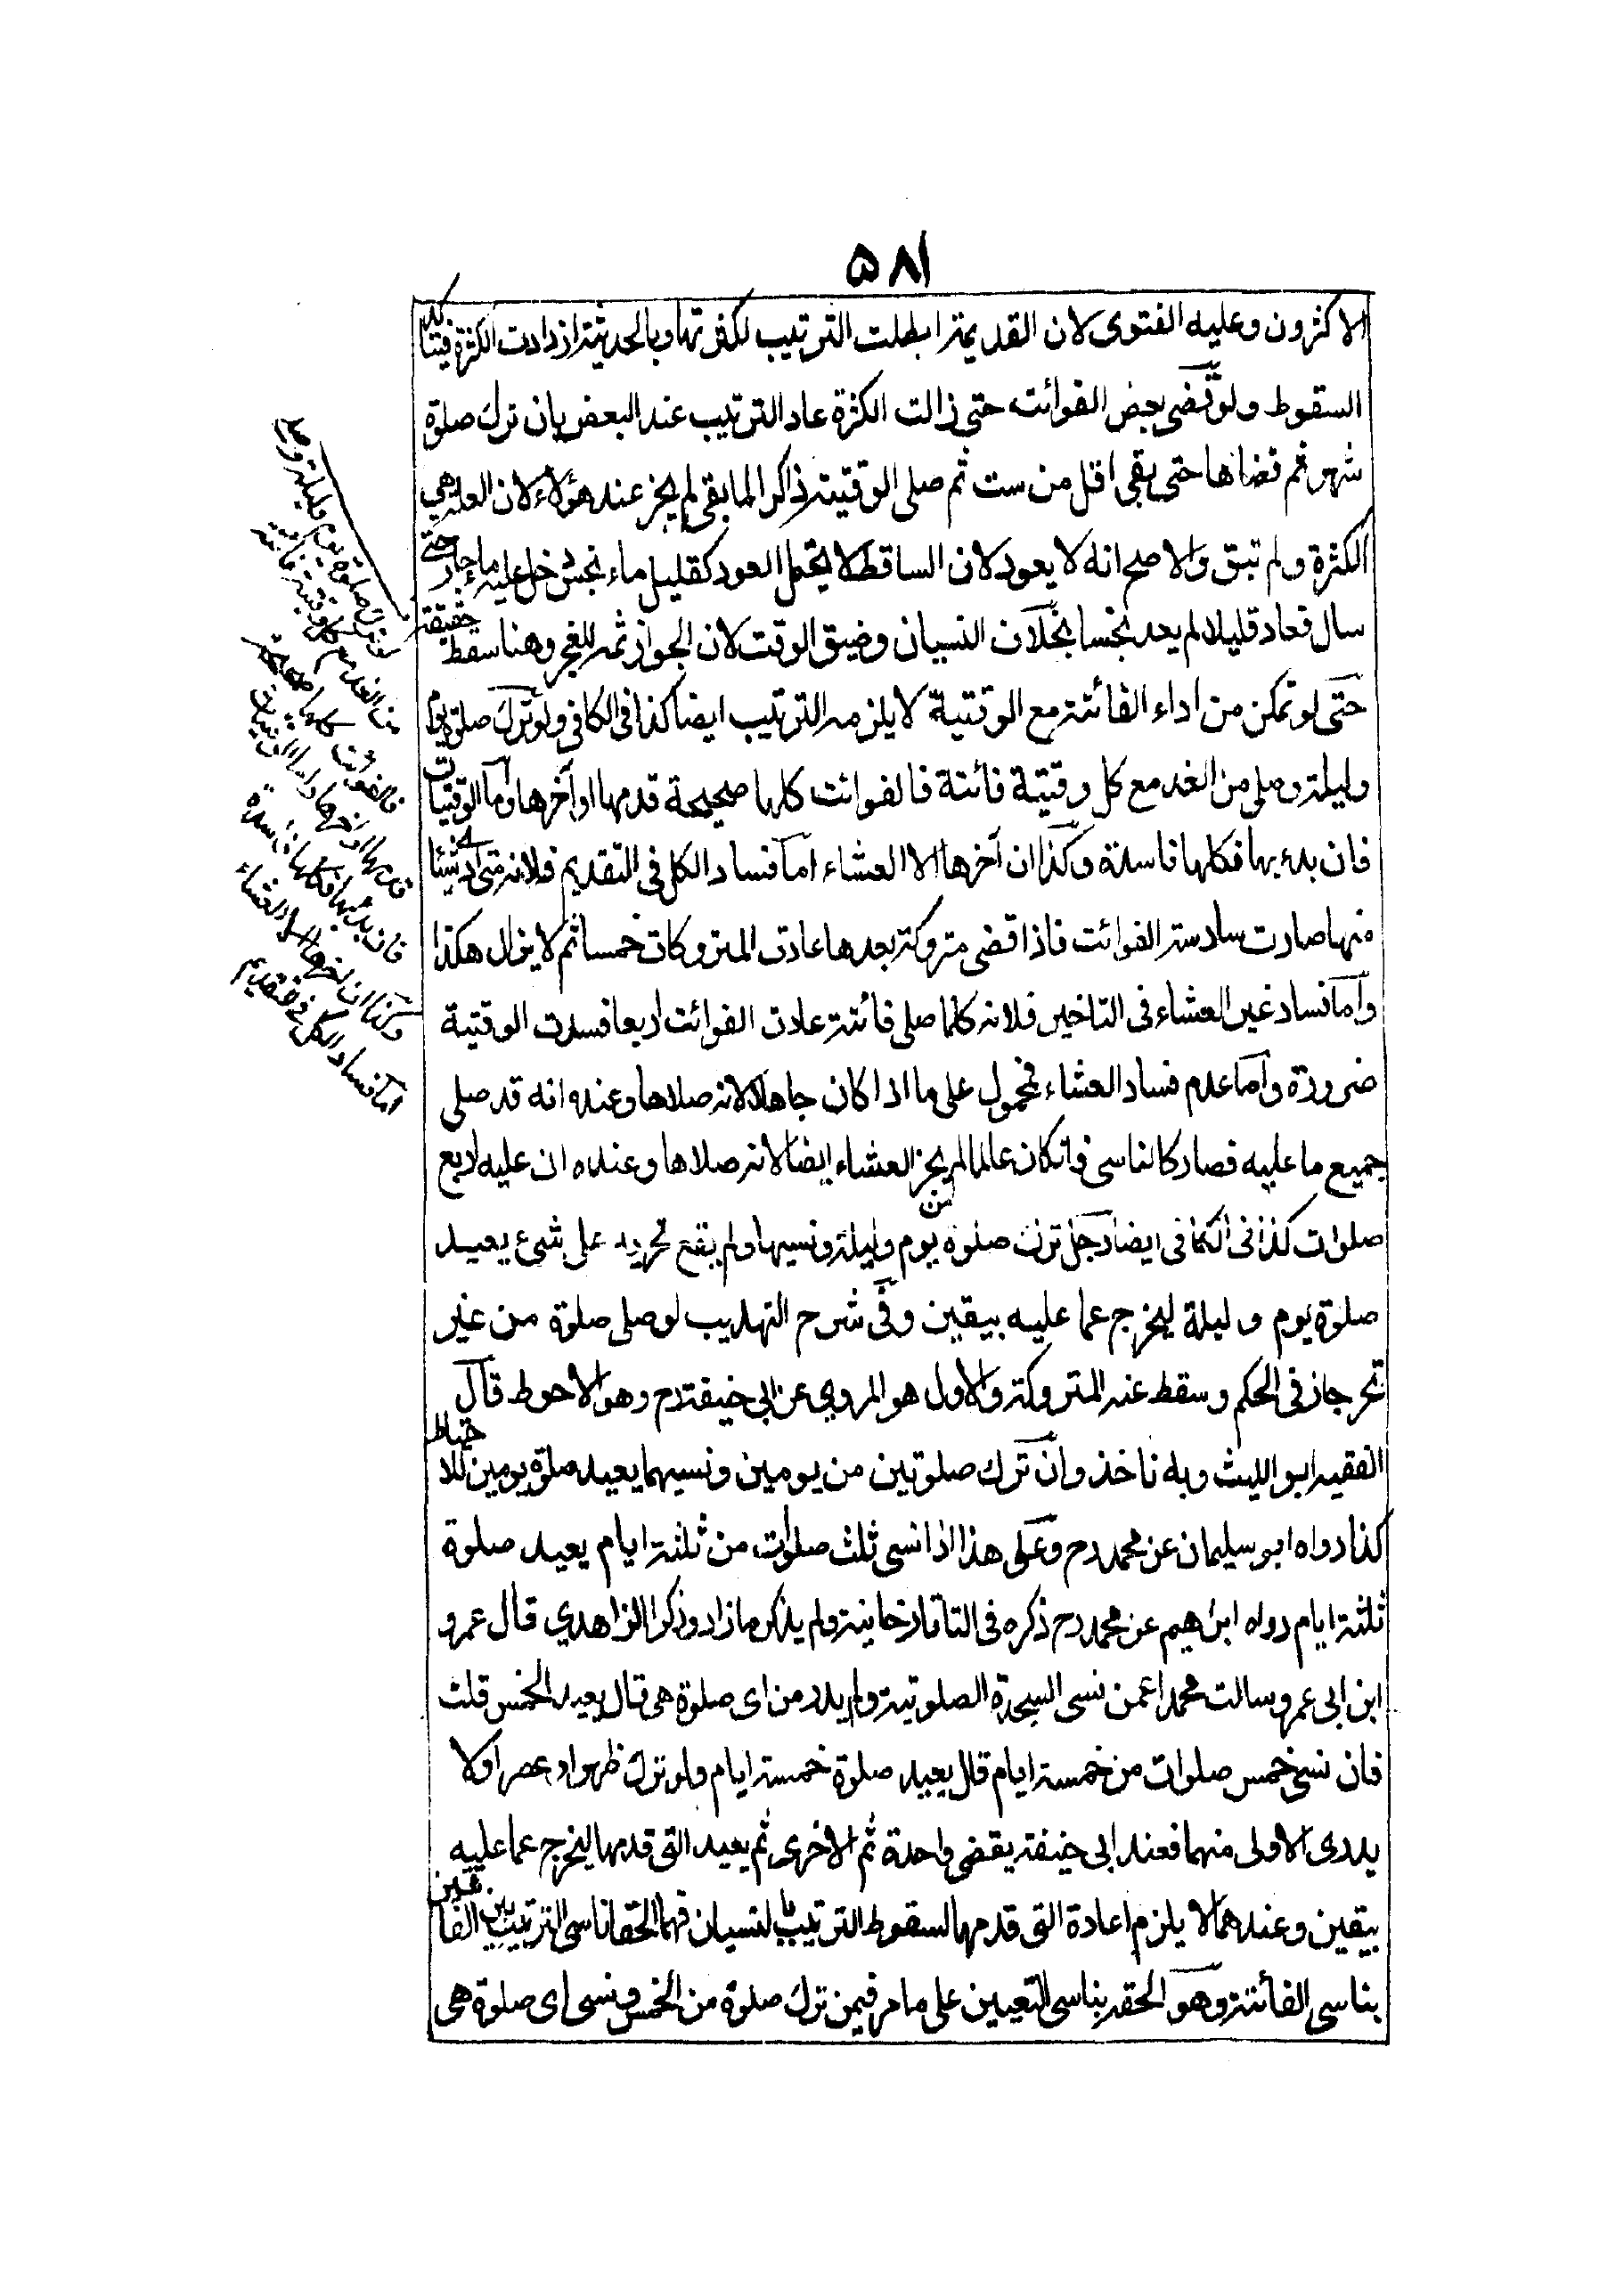 ۵۸۱
الاكثرون وعليه الفتوى لان القديمة ابطلت الترتيب لكثرتها وبالحديثة ازدادت الكثرة فيتاكد
السقوط ولو قضى بعض الفوائت حتى زالت الكثرة عاد الترتيب عند البعض بان ترك صلوة
شهر ثم قضاها حتى بقى اقل من ست ثم صلى الوقتية ذاكرا لما بقى لم يجز عند هؤلاء لان العلة هي
الكثرة ولم تبق والاصح انه لا يعود لان الساقط لا يحتمل العود كقليل ماء نجس دخل عليه ماء جار حتى
سال فعاد قليلا لم يعد نجسا بخلاف النسيان وضيق الوقت لان الجواز ثمه للعجز وهنا سقط حقيقة
حتى لو تمكن من اداء الفائتة مع الوقتية لا يلزمه الترتيب ايضا كذا فى الكافي ولو ترك صلوة يوم
وليلة وصلى من الغد مع كل وقتية فائتة فالفوائت كلها صحيحة قدمها او أخرها واما الوقتيات
فان بدء بها فكلها فاسدة وكذا ان أخرها الا العشاء اما فساد الكل فى التقديم فلانه متى ادى شيئا
منها صارت سادسة الفوائت فاذا قضى متروكة بعدها عادت المتروكات خمسا ثم لا يزال هكذا
واما فساد غير العشاء فى التاخير فلانه كلما صلى فائتة عادت الفوائت اربعا ففسدت الوقتية
ضرورة واما عدم فساد العشاء فمحمول على ما اذا كان جاهلا لانه صلاها وعنده انه قد صلى
جميع ما عليه فصار كالناسى فانكان عالما لم يجز العشاء ايضا لانه صلاها وعنده ان عليه اربع
صلوات كذا فى الكافى ايضا رجل ترك صلوة من يوم وليلة ونسيها ولم يقع تحريه على شئ يعيد
صلوة يوم و ليلة ليخرج عما عليه بيقين وفى شرح التهذيب لو صلى صلوة من غير
تحر جاز فى الحكم وسقط عنه المتروكة والاول هو المروي عن ابى حنيفة رح وهو الاحوط قال
الفقيه ابو الليث وبه ناخذ وان ترك صلوتين من يومين ونسيهما يعيد صلوة يومين للاحتياط
كذا رواه ابو سليمان عن محمد رح وعلى هذا اذا نسى ثلث صلوات من ثلثة ايام يعيد صلوة
ثلثة ايام رواه ابراهيم عن محمد رح ذكره فى التاتارخانية ولم يذكر ما زاد وذكر الزاهدي قال عمرو
ابن ابى عمرو سالت محمدا عمن نسى السجدة الصلوتية ولم يدر من اى صلوة هى قال يعيد الخمس قلت
فان نسى خمس صلوات من خمسة ايام قال يعيد صلوة خمسة ايام ولو ترك ظهرا وعصرا ولا
يدرى الاولى منهما فعند ابى حنيفة يقضى واحدة ثم الاخرى ثم يعيد التى قدمها ليخرج عما عليه
بيقين وعندهما لا يلزم اعادة التى قدمها لسقوط الترتيب بالنسيان فهما الحقا ناسى الترتيب بين الفائتين
بناسى الفائتة وهو الحقه بناسى التعيين على ما مر فيمن ترك صلوة من الخمس ونسى اى صلوة هى
لو ترك صلوة يوم وليلة وصلى
من الغد مع كل وقتية فائتة
فالفوائت كلها صحيحة
قدمها او اخرها واما الوقتيات
فان بدء بها فكلها فاسدة
وكذا ان اخرها الا العشاء
اما فساد الكل فى التقديم